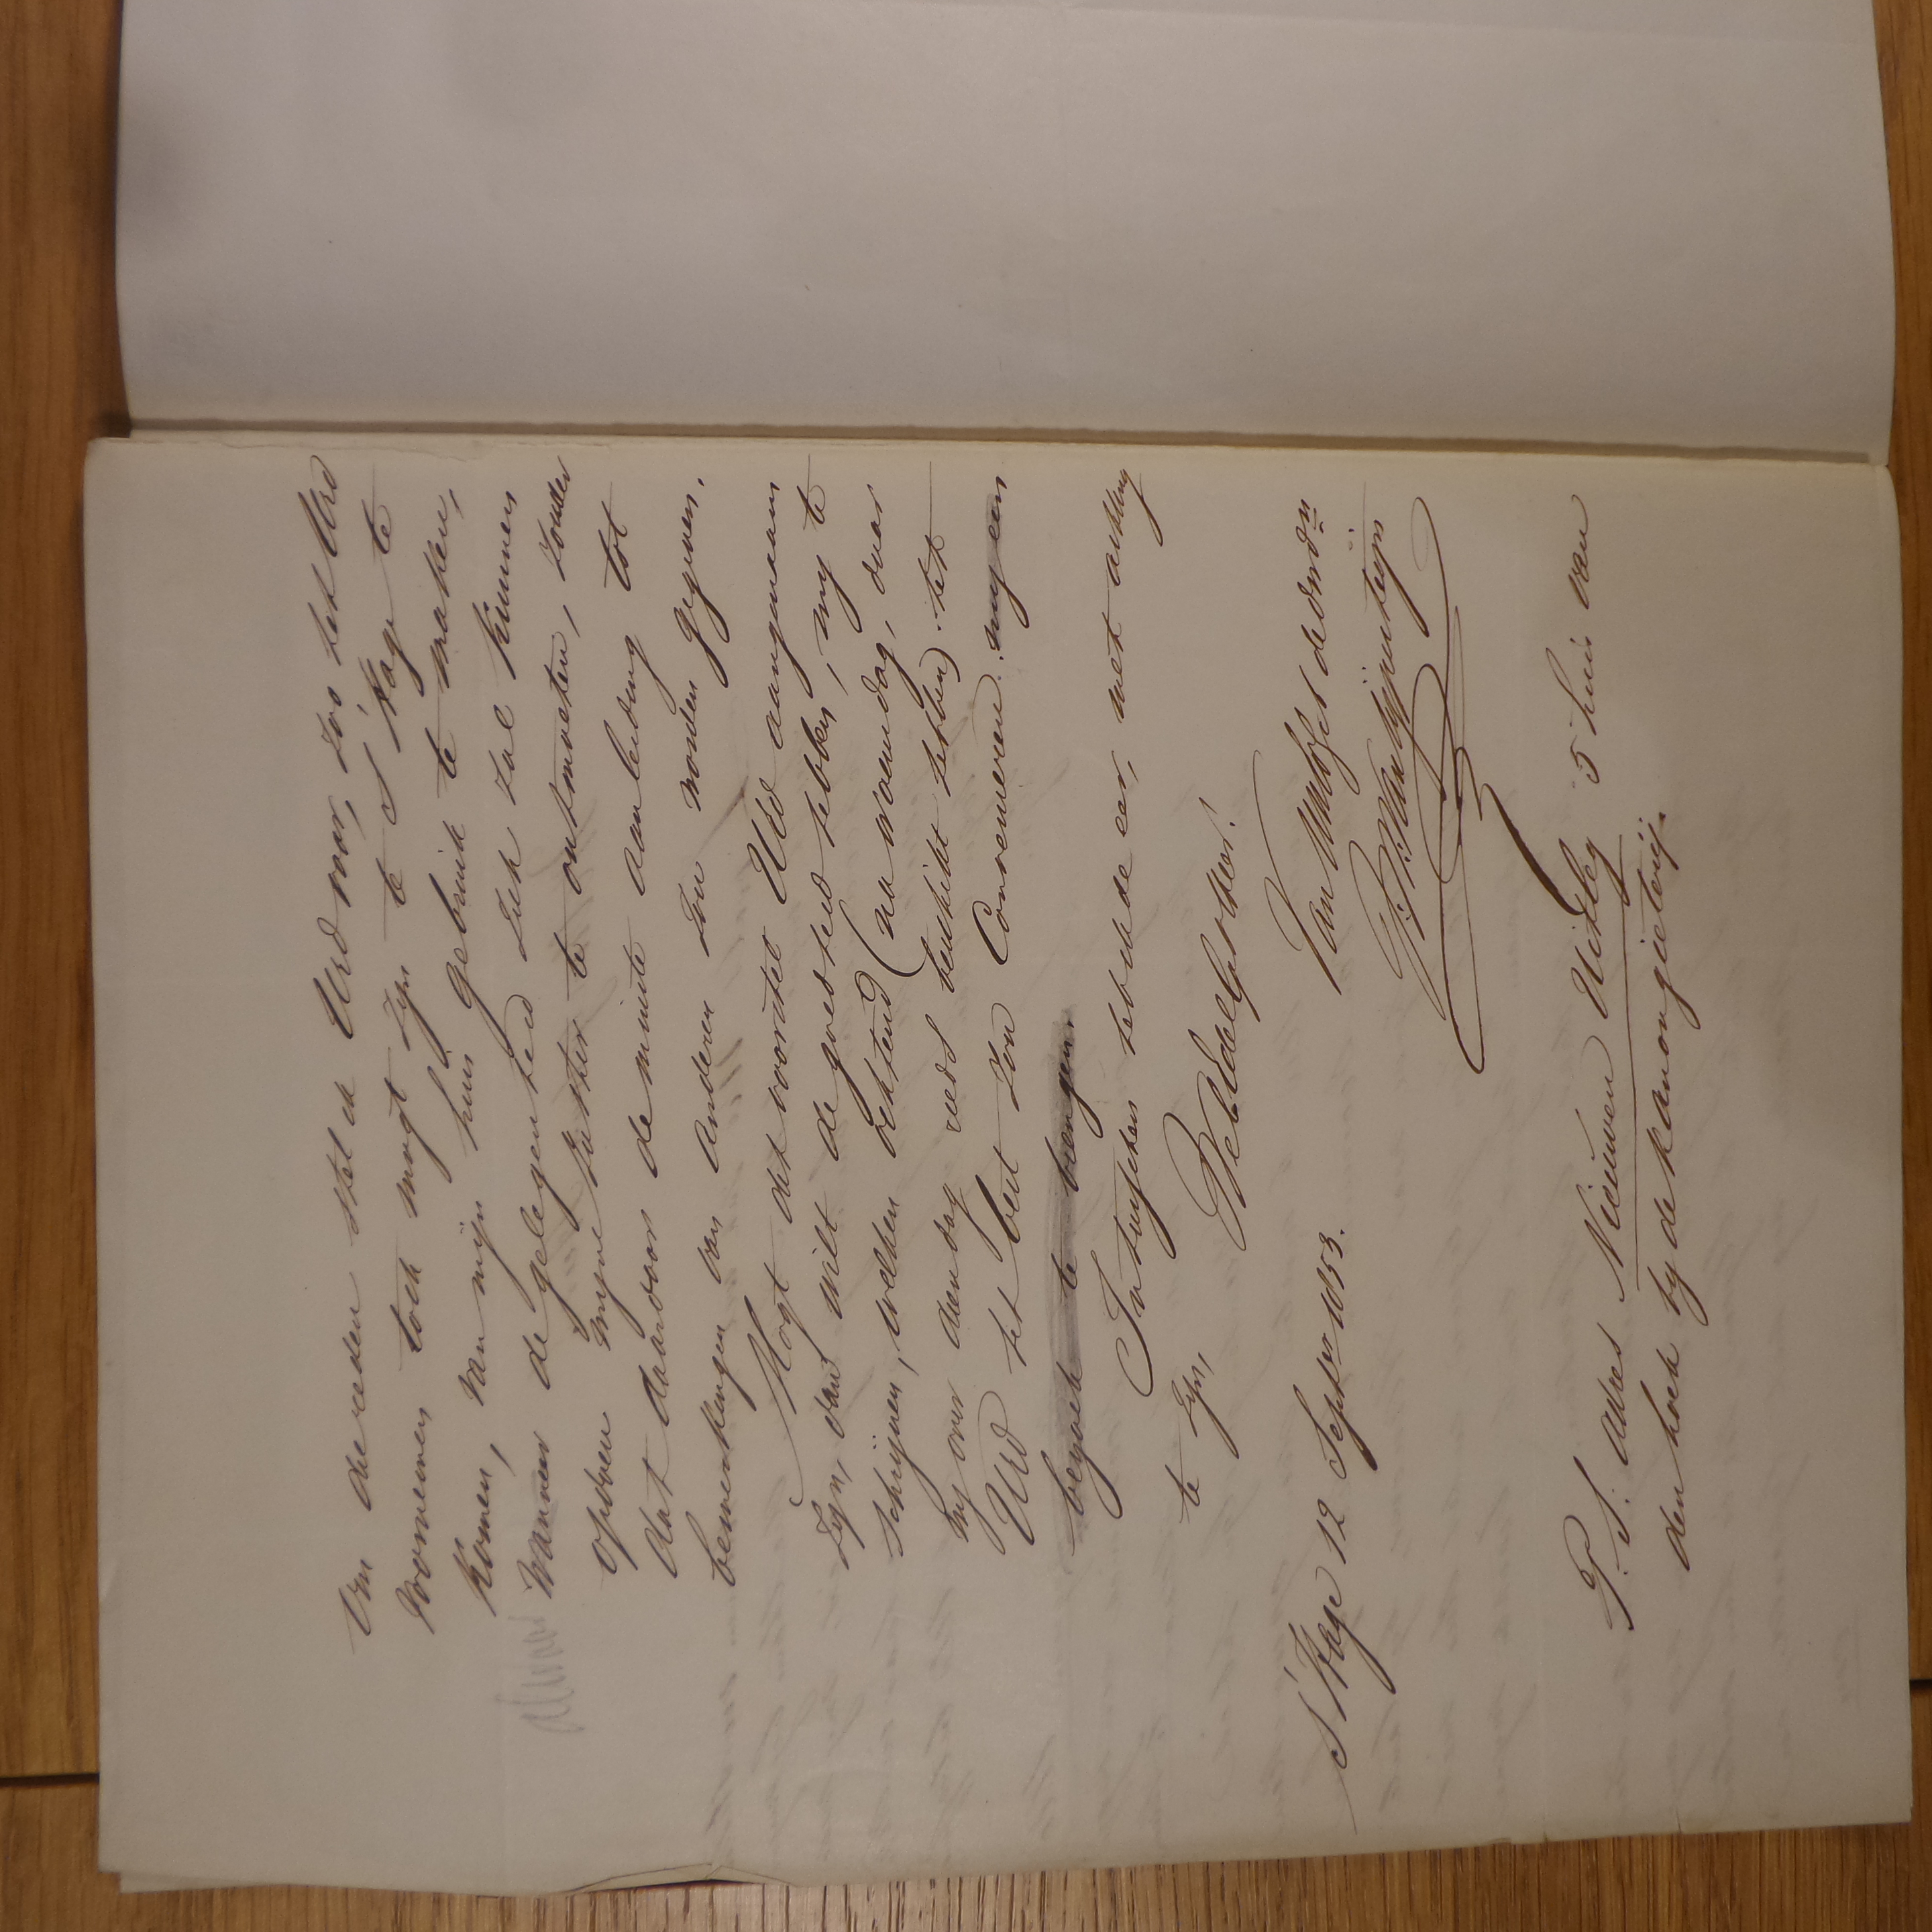 Om die reden stel ik UEd voor, zoo het UEd
voornemen toch mogt zijn te S'Hage te
komen, van mijn huis gebruik te maken,
alwaar wanneer de gelegenheid zich zal kunnen
opdoen mijne zuster te ontmoeten, zonder
dat daardoor de minste aanleiding tot
bemerkingen van anderen zou worden gegeven.
Mogt dit voorstel UEd aangenaam
zijn, dan wilt de goedheid hebben, my te
schrijven, welken ochtend (na woensdag, daar
my over dien dag reeds beschikt hebben) het
UEd het best zou Convenieren my een
bezoek te brengen.
Intusschen heb ik de eer, met achting
te zijn,
WelEdelGeb Heer!
S'Hage 12 Septr 1853.
P.S. adres Nieuwen Uitleg 5 huis van
den hoek by de Kanongieterij.